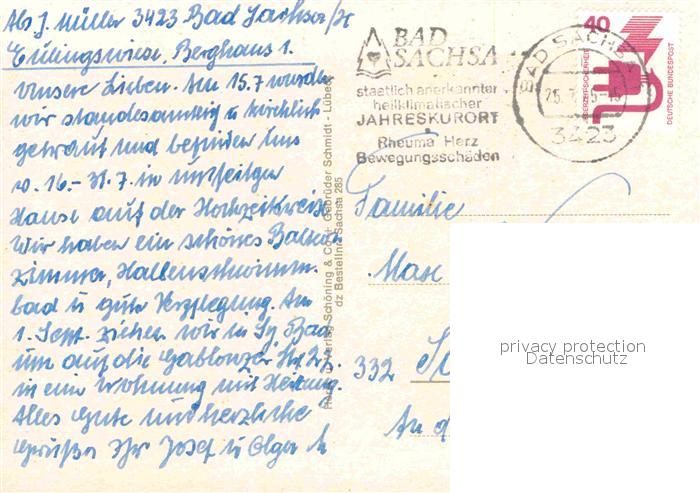 Abs J. Müller 3423 Bad Sachsa/Hz
Eulingswiese, Berghaus 1.
Unsere Lieben. Am 15.7 wurden
wir standesamtlich u kirchlich
getraut und befinden uns
v. 16.-31.7. in
Hause auf der Hochzeitsreise
Wir haben ein schönes Balkon
zimmer, Hallenschwimm-
bad u gute Verpflegung. Am
1. Sept. ziehen wir in Bad
um auf die Gablonzer Str.
in eine Wohnung mit Heizung.
Alles Gute und herzliche
Grüße Ihr Josef u Olga M
BAD
SACHSA
staatlich anerkannter
heilklimatischer
JAHRESKURORT
Rheuma Herz
Bewegungsschäden
BAD SACHSA
3423
40
DEUTSCHE BUNDESPOST
Verlag Schöning & Co + Gebrüder Schmidt - Lübeck
dz Bestellnr. Sachsa 285
Familie
Max
332
An d
privacy protection
Datenschutz